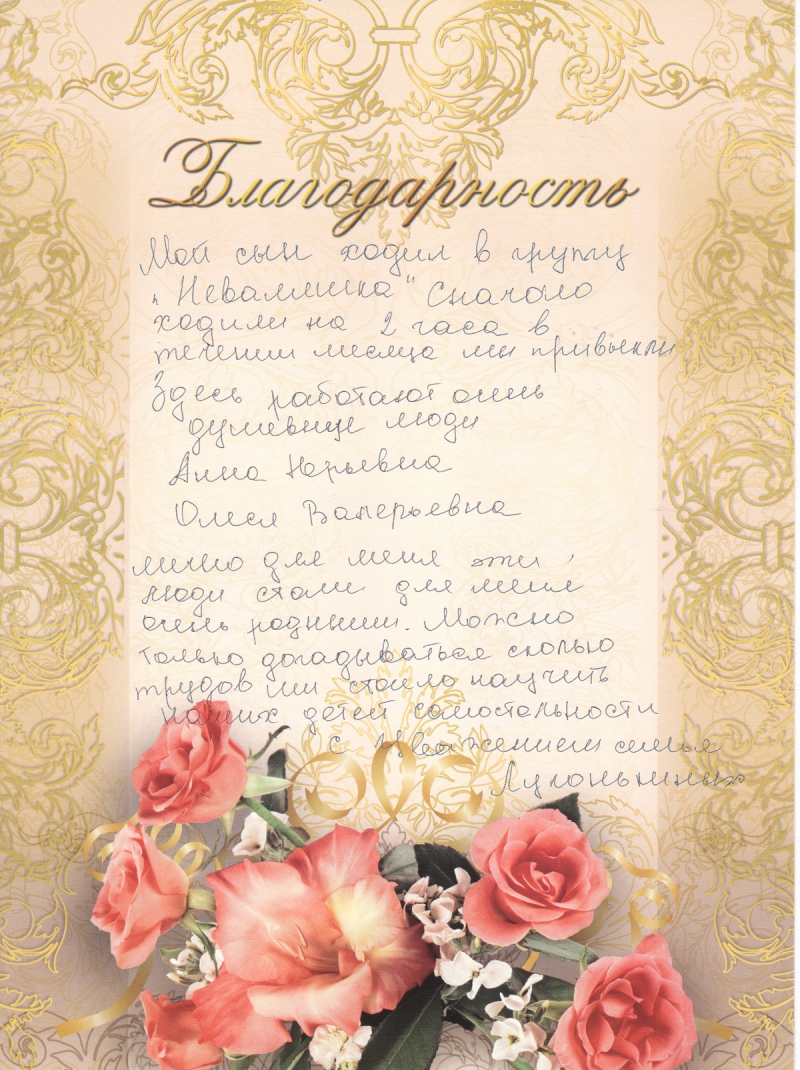 Благодарность
Мой сын ходил в группу
„Неваляшка" Сначало
ходили на 2 часа в
течении месяца мы привыкли
Здесь работают очень
душевные люди
Анна Юрьевна
Олеся Валерьевна
лично для меня эти
люди стали для меня
очень родными. Можно
только догадываться сколько
трудов им стоило научить
наших детей самостоятельности
с Уважением семья